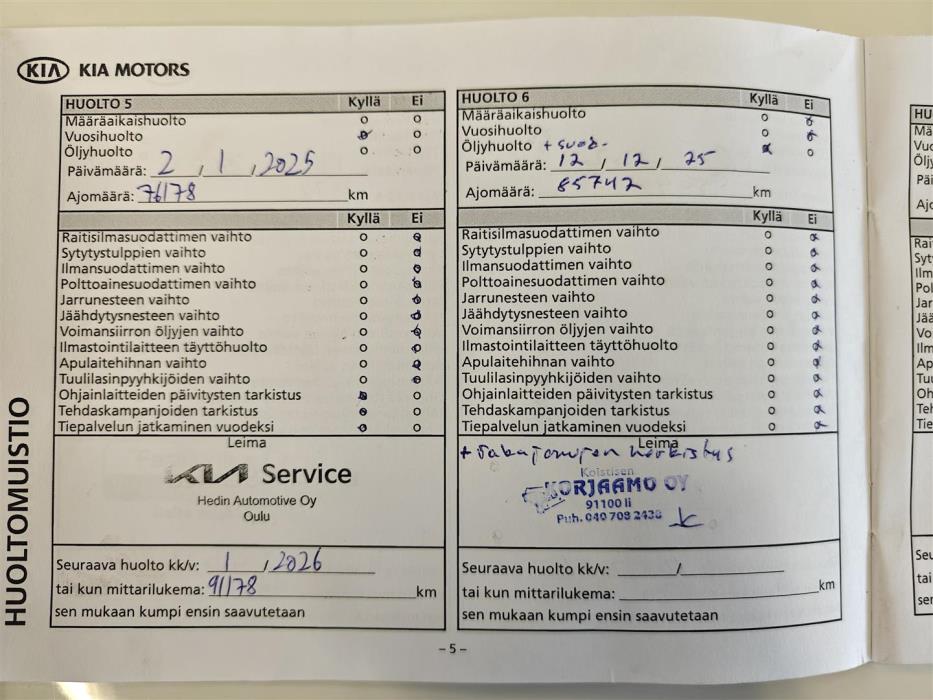 KIA KIA MOTORS
HUOLTO 5 Kyllä Ei
Määräaikaishuolto o o
Vuosihuolto o o
Öljyhuolto o o
Päivämäärä: 2 , 1 , 2025
Ajomäärä: 76178 km
Kyllä Ei
Raitisilmasuodattimen vaihto o o
Sytytystulppien vaihto o o
Ilmansuodattimen vaihto o o
Polttoainesuodattimen vaihto o o
Jarrunesteen vaihto o o
Jäähdytysnesteen vaihto o o
Voimansiirron öljyjen vaihto o o
Ilmastointilaitteen täyttöhuolto o o
Apulaitehihnan vaihto o o
Tuulilasinpyyhkijöiden vaihto o o
Ohjainlaitteiden päivitysten tarkistus o o
Tehdaskampanjoiden tarkistus o o
Tiepalvelun jatkaminen vuodeksi o o
Leima
KIA Service
Hedin Automotive Oy
Oulu
Seuraava huolto kk/v: 1 / 2026
tai kun mittarilukema: 91178 km
sen mukaan kumpi ensin saavutetaan
HUOLTO 6 Kyllä Ei
Määräaikaishuolto o o
Vuosihuolto o o
Öljyhuolto + suod. o o
Päivämäärä: 12 / 12 / 25
Ajomäärä: 85742 km
Kyllä Ei
Raitisilmasuodattimen vaihto o o
Sytytystulppien vaihto o o
Ilmansuodattimen vaihto o o
Polttoainesuodattimen vaihto o o
Jarrunesteen vaihto o o
Jäähdytysnesteen vaihto o o
Voimansiirron öljyjen vaihto o o
Ilmastointilaitteen täyttöhuolto o o
Apulaitehihnan vaihto o o
Tuulilasinpyyhkijöiden vaihto o o
Ohjainlaitteiden päivitysten tarkistus o o
Tehdaskampanjoiden tarkistus o o
Tiepalvelun jatkaminen vuodeksi o o
Leima
+ Takajarrujen
Kolstisen
KORJAAMO OY
91100 Ii
Puh. 040 708 2438
Seuraava huolto kk/v: /
tai kun mittarilukema: km
sen mukaan kumpi ensin saavutetaan
HUOLTOMUISTIO
- 5 -